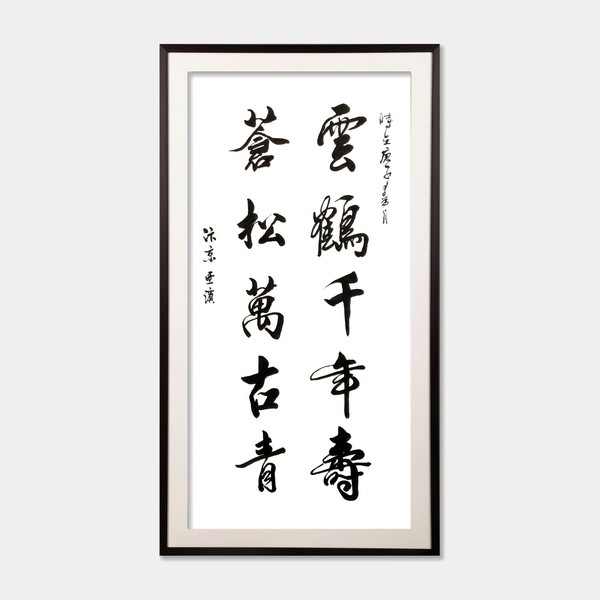 時在庚子年春月
雲鶴千年壽
蒼松萬古青
汴京 亚濱